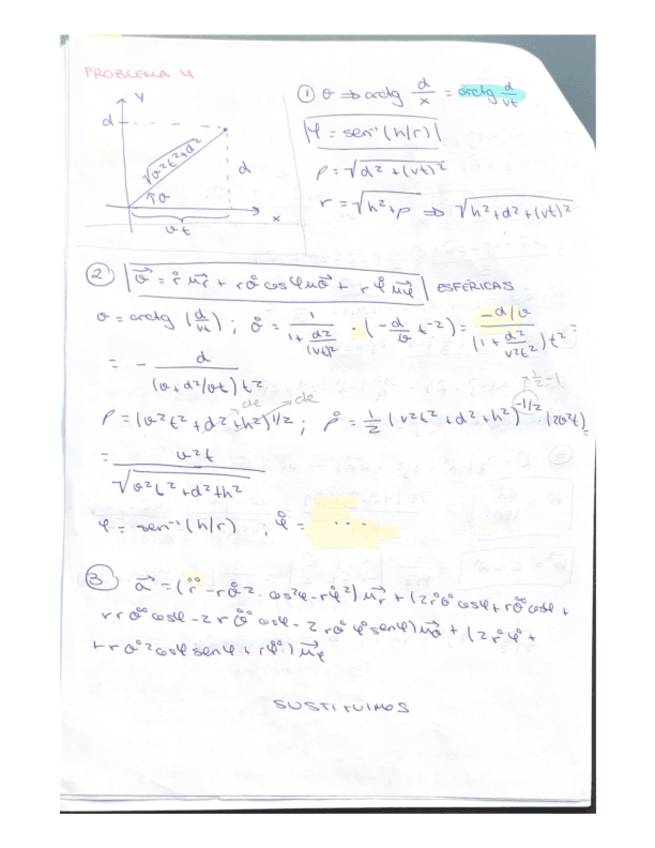 PROBLEMA 4
Y
d
√v²t²+d²
d
θ
x
vt
① θ ⇒ arctg d/x = arctg d/vt
φ = sen⁻¹(h/r)
ρ = √d² + (vt)²
r = √h²+ρ ⇒ √h²+d²+(vt)²
② v⃗ = ṙ u⃗r + rθ̇ cosφ u⃗θ + r φ̇ u⃗φ ESFÉRICAS
θ = arctg (d/vt) ; θ̇ = 1/(1 + d²/(vt)²) · (-d/v t⁻²) = (-d/v)/((1 + d²/v²t²) t²) =
= - d/((v + d²/vt) t²)
cte cte
-1/2 = 1/2 - 1
r = (v²t² + d² + h²)^1/2 ; ṙ = 1/2 (v²t² + d² + h²)^-1/2 · (2v²t) =
= v²t/√v²t² + d² + h²
φ = sen⁻¹(h/r) ; φ̇ = ...
③ a⃗ = (r̈ - rθ̇² · cos²φ - rφ̇²) u⃗r + (2ṙθ̇ cosφ + rθ̈ cosφ +
rrθ̈ cosφ - 2rθ̈ cosφ - 2rθ̇ φ̇ senφ) u⃗θ + (2ṙφ̇ +
+ rθ̇² cosφ senφ + rφ̈) u⃗φ
SUSTITUIMOS